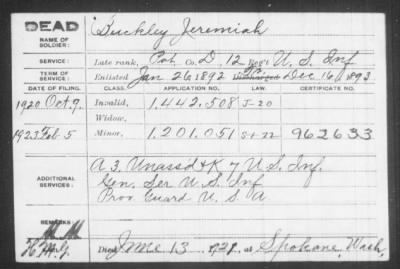 DEAD
NAME OF SOLDIER: Buckley Jeremiah
SERVICE: Late rank, Pvt. Co. D, 12 Reg't U. S. Inf
TERM OF SERVICE: Enlisted Jan 26 1892 Dec 16, 1893
DATE OF FILING. CLASS. APPLICATION NO. LAW. CERTIFICATE NO.
1920 Oct. 9. Invalid, 1,442.508 J-20
Widow,
1923 Feb 5 Minor, 1,201.051 S+22 962633
ADDITIONAL SERVICES: A 3, Unassd + K 7 U. S. Inf.
Gen. Ser U. S. Inf
Prov Guard U. S. A
REMARKS:
Died June 13, 1921, at Spokane, Wash.